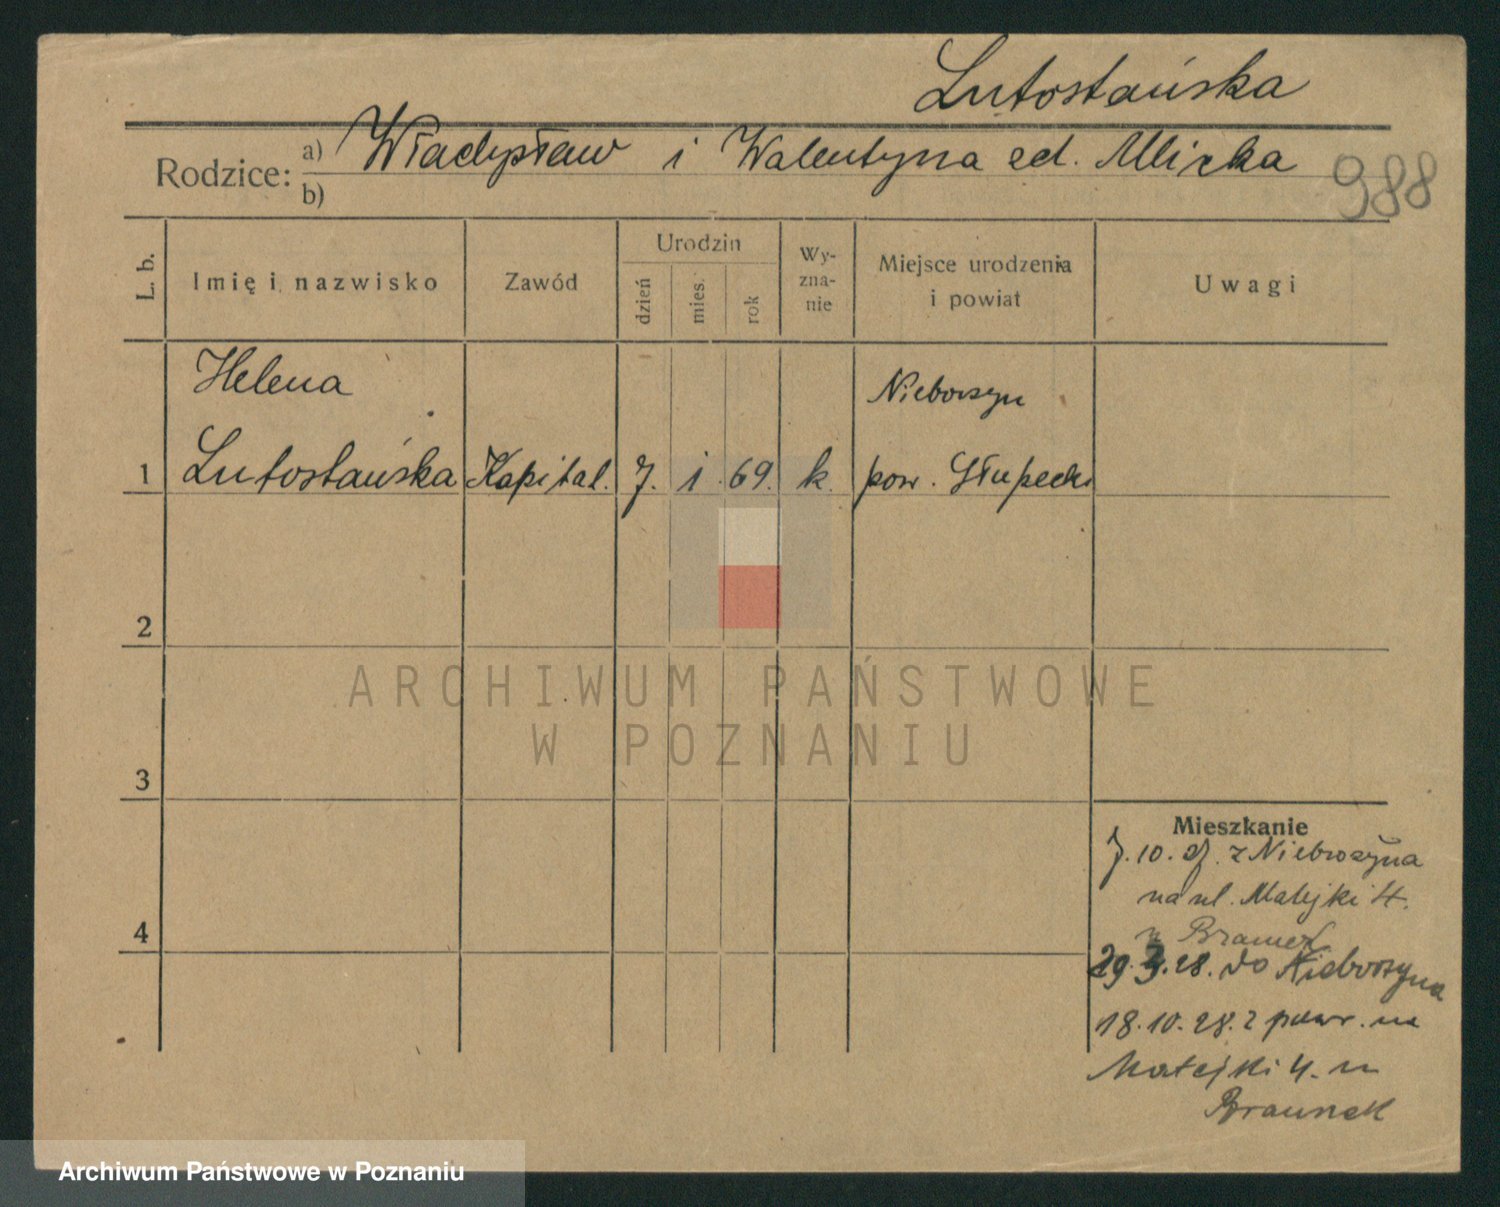 Lutostańska
Rodzice: a) Władysław i Walentyna zd. Mlicka
b)
988
L. b.
Imię i nazwisko
Zawód
Urodzin
dzień
mies.
rok
Wy-
zna-
nie
Miejsce urodzenia
i powiat
Uwagi
Helena
Nieborzyn
1 Lutostańska Kapital. 7. i 69. k. pow. Słupecki
2
ARCHIWUM PAŃSTWOWE
W POZNANIU
3
Mieszkanie
7.10. z Nieborzyna
na ul. Matejki 4.
4
29. 28. do Nieborzyna
18.10.28. z powr. na
Matejki 4. u
Braunek
Archiwum Państwowe w Poznaniu